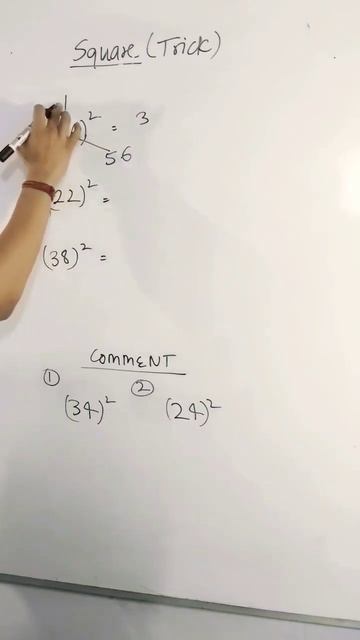 Square (Trick)
)² = 3
56
22)² =
(38)² =
COMMENT
① ②
(34)² (24)²